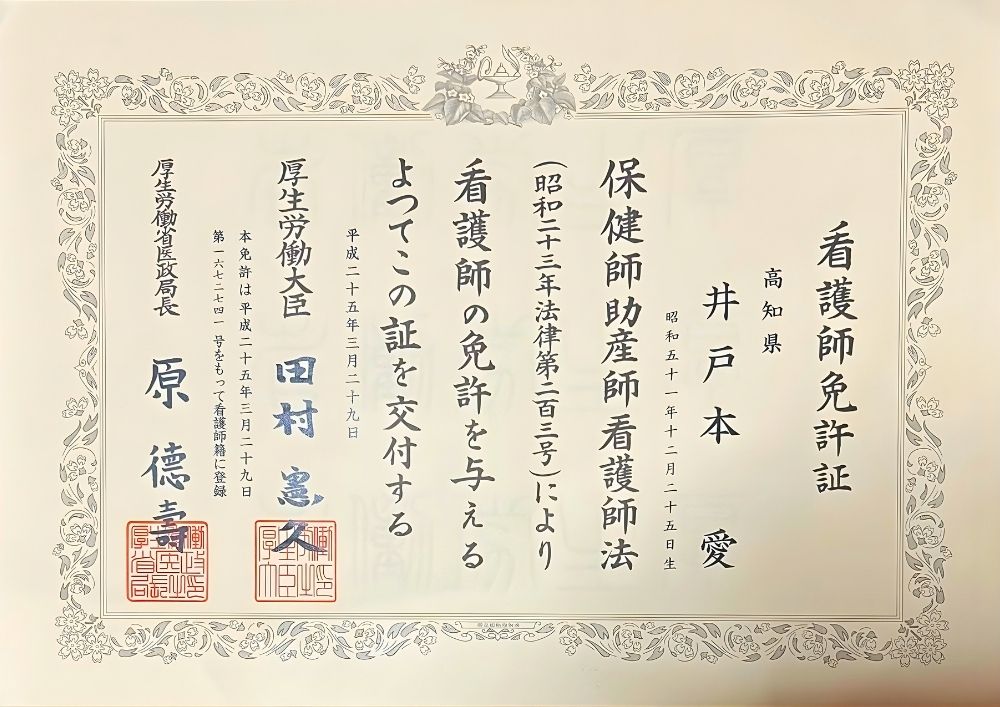 看護師免許証
高知県
井戸本 愛
昭和五十一年十二月二十五日生
保健師助産師看護師法
(昭和二十三年法律第二百三号)により
看護師の免許を与える
よつてこの証を交付する
平成二十五年三月二十九日
厚生労働大臣 田村 憲久
本免許は平成二十五年三月二十九日
第一六七二七四一号をもって看護師籍に登録
厚生労働省医政局長 原 德壽